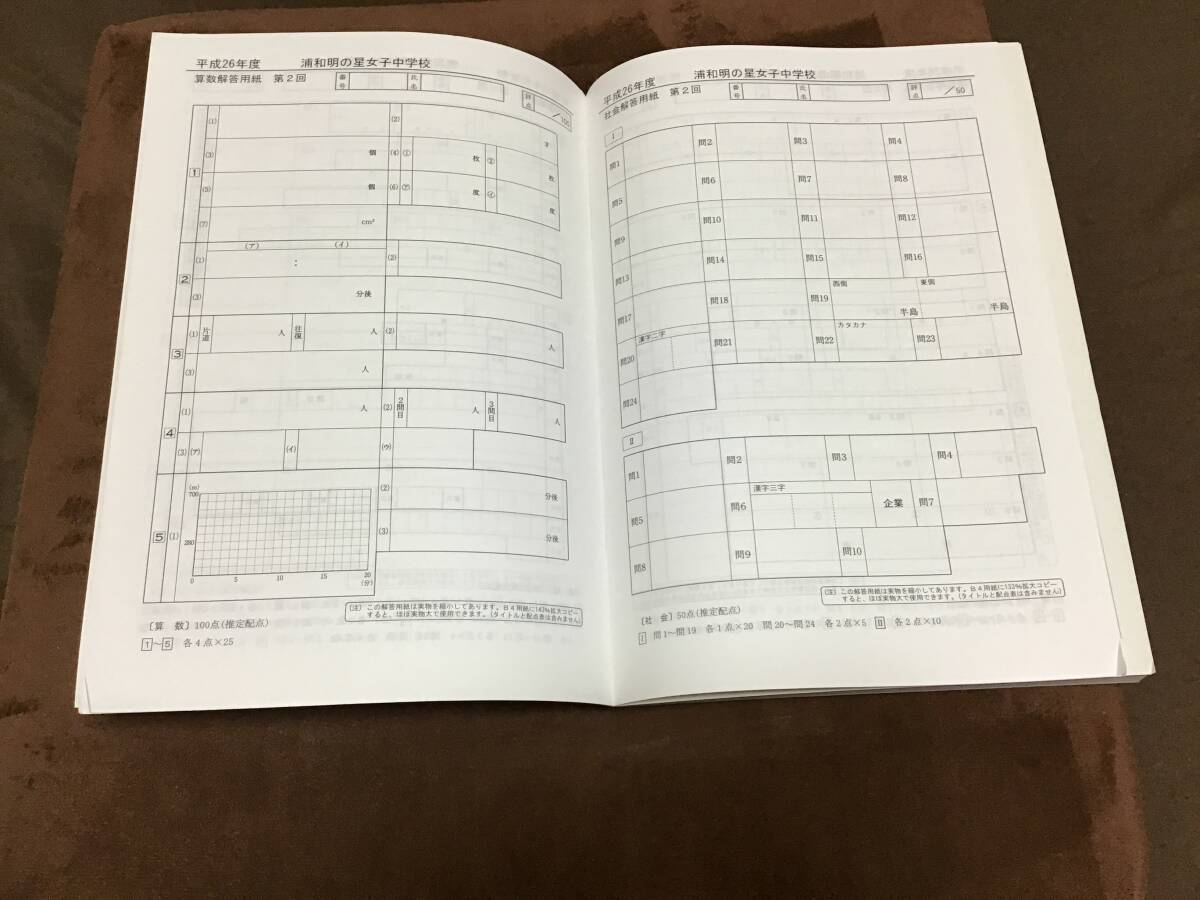 平成26年度 浦和明の星女子中学校
算数解答用紙 第2回 番号 氏名 評点 ／100
1 (1) (2) す
(3) 個 (4) ① 枚 ② 枚
(5) 個 (6) ㋐ 度 ㋑ 度
(7) cm²
2 (1) (ア) (イ) ： (2)
(3) 分後
3 (1) 片道 人 往復 人 (2) 人
(3) 人
4 (1) 人 (2) 2問目 人 3問目 人
(3) (ア) (イ) (ウ)
5 (1) (m) 700 280 0 5 10 15 20 (分) (2) 分後
(3) 分後
(注) この解答用紙は実物を縮小してあります。B4用紙に143%拡大コピーすると、ほぼ実物大で使用できます。(タイトルと配点表は含みません)
〔算 数〕100点(推定配点)
1〜5 各4点×25
平成26年度 浦和明の星女子中学校
社会解答用紙 第2回 番号 氏名 評点 ／50
I
問1 問2 問3 問4
問5 問6 問7 問8
問9 問10 問11 問12
問13 問14 問15 問16
問17 問18 問19 西側 半島 東側 半島
問20 漢字二字 問21 問22 カタカナ 問23
問24
II
問1 問2 問3 問4
問5 問6 漢字三字 企業 問7
問8 問9 問10
(注) この解答用紙は実物を縮小してあります。B4用紙に132%拡大コピーすると、ほぼ実物大で使用できます。(タイトルと配点表は含みません)
〔社 会〕50点(推定配点)
I 問1〜問19 各1点×20 問20〜問24 各2点×5 II 各2点×10